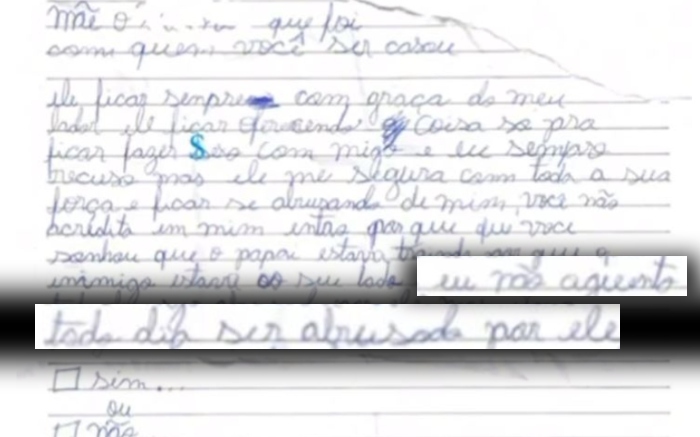 mãe o que foi
com quem você ser casou
ele ficar senpre com graça do meu
lador ele ficar oferecendo coisa so pra
ficar fazer Sexo com migo e eu sempre
recuso mas ele me segura com toda a sua
força e ficar se abrusando de mim, você não
acridita em mim entro por que que voce
sonhou que o papai estava por que o
inimigo estava ao seu lado eu não agüento
todo dia ser abrusada por ele
sim...
ou
não